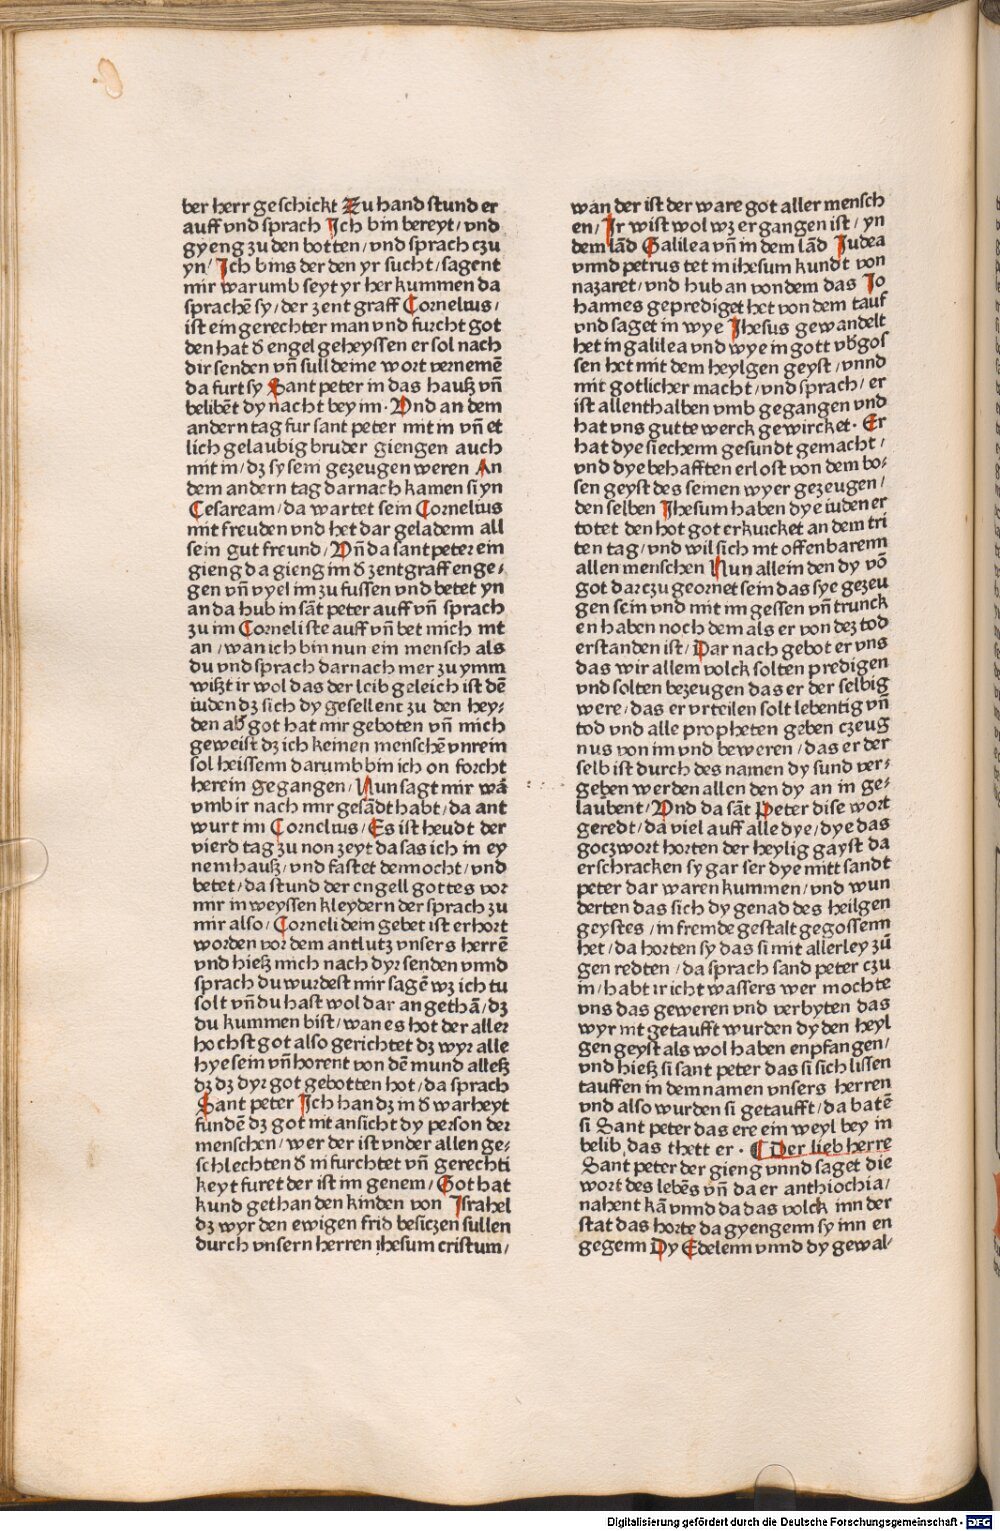 ber herr geschickt Zu hand stund er
auff vnd sprach Jch bin bereyt/vnd
gyeng zu den botten/vnd sprach czu
yn/Jch bins der den yr sucht/sagent
mir warumb seyt yr her kummen da
sprachē sy/der zent graff Cornelius/
ist ein gerechter man vnd furcht got
den hat ð engel geheyssen er sol nach
dir senden vn̄ sull deine wort vernemē
da furt sy Sant peter in das hauß vn̄
belibēt dy nacht bey im. Vnd an dem
andern tag fur sant peter mit in vn̄ et
lich gelaubig bruder giengen auch
mit in/dz sy sein gezeugen weren An
dem andern tag darnach kamen si yn
Cesaream/da wartet sein Cornelius
mit freuden vnd het dar geladenn all
sein gut freund/Vn̄ da sant peter ein
gieng da gieng im ð zentgraff enge⸗
gen vn̄ vyel im zu fussen vnd betet yn
an da hub in sāt peter auff vn̄ sprach
zu im Corneli ste auff vn̄ bet mich nit
an/wan ich bin nun ein mensch als
du vnd sprach darnach mer zu ymm
wißt ir wol das der leib geleich ist dē
iuden dz sich dy gesellent zu den hey⸗
den ab̕ got hat mir geboten vn̄ mich
geweist dz ich keinen menschē vnrein
sol heissenn darumb bin ich on forcht
herein gegangen/Nun sagt mir wā
vmb ir nach mir gesādt habt/da ant
wurt im Cornelius/Es ist heudt der
vierd tag zu non zeyt da sas ich in ey
nem hauß/vnd fastet dennocht/vnd
betet/da stund der engell gottes vor
mir in weyssen kleydern der sprach zu
mir also/Corneli dein gebet ist erhort
worden vor dem antlutz vnsers herrē
vnd hieß mich nach dyr senden vnnd
sprach du wurdest mir sagē wz ich tu
solt vn̄ du hast wol dar an gethā/dz
du kummen bist/wan es hot der aller
hochst got also gerichtet dz wyr alle
hye sein vn̄ horent von dē mund alleß
dz dz dyr got gebotten hot/da sprach
Sant peter Jch han dz in ð warheyt
fundē dz got nit ansicht dy person der
menschen/wer der ist vnder allen ge⸗
schlechten ð in furchtet vn̄ gerechti
keyt furet der ist im genem/Got hat
kund gethan den kinden von Jsrahel
dz wyr den ewigen frid besiczen sullen
durch vnsern herren ihesum cristum/
wan der ist der ware got aller mensch
en/Jr wist wol wz ergangen ist/yn
dem lād Galilea vn̄ in dem lād Judea
vnnd petrus tet in ihesum kundt von
nazaret/vnd hub an von dem das Jo
hannes geprediget het von dem tauf
vnd saget in wye Jhesus gewandelt
het in galilea vnd wye in gott vb̕gos
sen het mit dem heylgen geyst/vnnd
mit gotlicher macht/vnd sprach/er
ist allenthalben vmb gegangen vnd
hat vns gutte werck gewircket. Er
hat dye siechenn gesundt gemacht/
vnd dye behafften erlost von dem bo⸗
sen geyst des seinen wyer gezeugen/
den selben Jhesum haben dye iuden er
totet den hot got erkuicket an dem tri
ten tag/vnd wil sich nit offenbarenn
allen menschen Nun allein den dy vō
got darczu geornet sein das sye gezeu
gen sein vnd mit im gessen vn̄ trunck
en haben noch dem als er von dez tod
erstanden ist/Dar nach gebot er vns
das wir allem volck solten predigen
vnd solten bezeugen das er der selbig
were/das er vrteilen solt lebentig vn̄
tod vnd alle propheten geben czeug
nus von im vnd beweren/das er der
selb ist durch des namen dy sund ver⸗
geben werden allen den dy an in ge⸗
laubent/Vnd da sāt Peter dise wort
geredt/da viel auff alle dye/dye das
goczwort horten der heylig gayst da
erschracken sy gar ser dye mitt sandt
peter dar waren kummen/vnd wun
derten das sich dy genad des heilgen
geystes/in fremde gestalt gegossenn
het/da horten sy das si mit allerley zū
gen redten/da sprach sand peter czu
in/habt ir icht wassers wer mochte
vns das geweren vnd verbyten das
wyr nit getaufft wurden dy den heyl
gen geyst als wol haben enpfangen/
vnd hieß si sant peter das si sich lissen
tauffen in dem namen vnsers herren
vnd also wurden si getaufft/da batē
si Sant peter das ere ein weyl bey in
belib, das thett er. ¶ Der lieb herre
Sant peter der gieng vnnd saget die
wort des lebēs vn̄ da er anthiochia/
nahent kā vnnd da das volck inn der
stat das horte da gyengenn sy inn en
gegenn Dy Edelenn vnnd dy gewal⸗
Digitalisierung gefördert durch die Deutsche Forschungsgemeinschaft - DFG